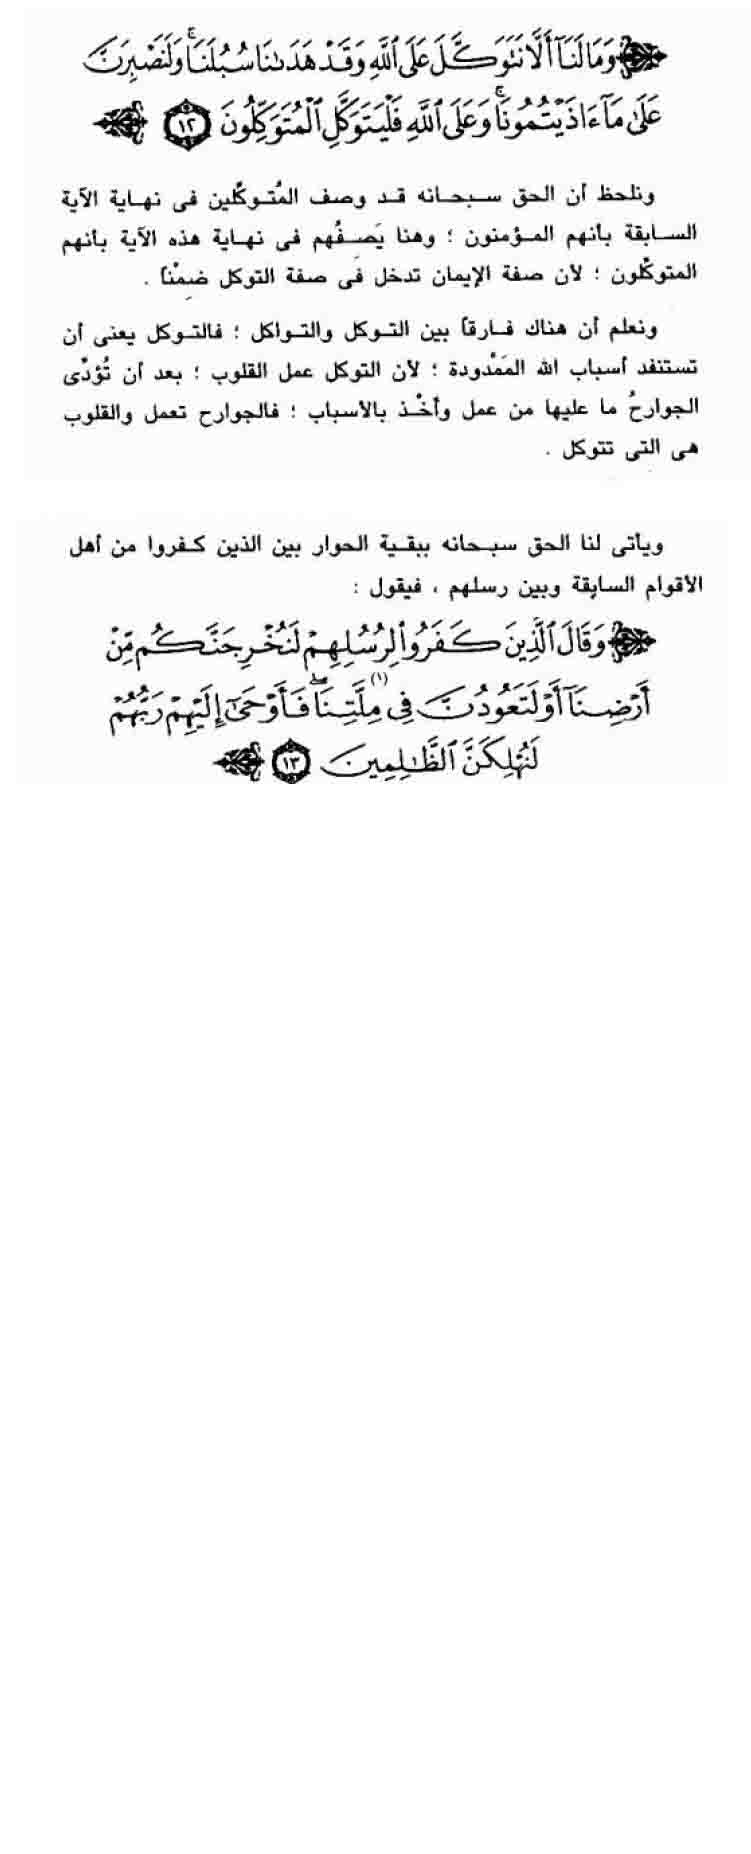 وَمَا لَنَآ أَلَّا نَتَوَكَّلَ عَلَى ٱللَّهِ وَقَدْ هَدَىٰنَا سُبُلَنَا ۚ وَلَنَصْبِرَنَّ
عَلَىٰ مَآ ءَاذَيْتُمُونَا ۚ وَعَلَى ٱللَّهِ فَلْيَتَوَكَّلِ ٱلْمُتَوَكِّلُونَ ١٢
ونلحظ أن الحق سبحانه قد وصف المُتوكِّلين فى نهاية الآية
السابقة بأنهم المؤمنون ؛ وهنا يَصِفُهم فى نهاية هذه الآية بأنهم
المتوكِّلون ؛ لأن صفة الإيمان تدخل فى صفة التوكل ضِمْناً .
ونعلم أن هناك فارقاً بين التوكل والتواكل ؛ فالتوكل يعنى أن
تستنفد أسباب الله المَمْدودة ؛ لأن التوكل عمل القلوب ؛ بعد أن تُؤدِّى
الجوارحُ ما عليها من عمل وأخْذ بالأسباب ؛ فالجوارح تعمل والقلوب
هى التى تتوكل .
ويأتى لنا الحق سبحانه ببقية الحوار بين الذين كفروا من أهل
الأقوام السابقة وبين رسلهم ، فيقول :
وَقَالَ ٱلَّذِينَ كَفَرُوا۟ لِرُسُلِهِمْ لَنُخْرِجَنَّكُم مِّنْ
أَرْضِنَآ أَوْ لَتَعُودُنَّ فِى مِلَّتِنَا (١) ۖ فَأَوْحَىٰٓ إِلَيْهِمْ رَبُّهُمْ
لَنُهْلِكَنَّ ٱلظَّٰلِمِينَ ١٣